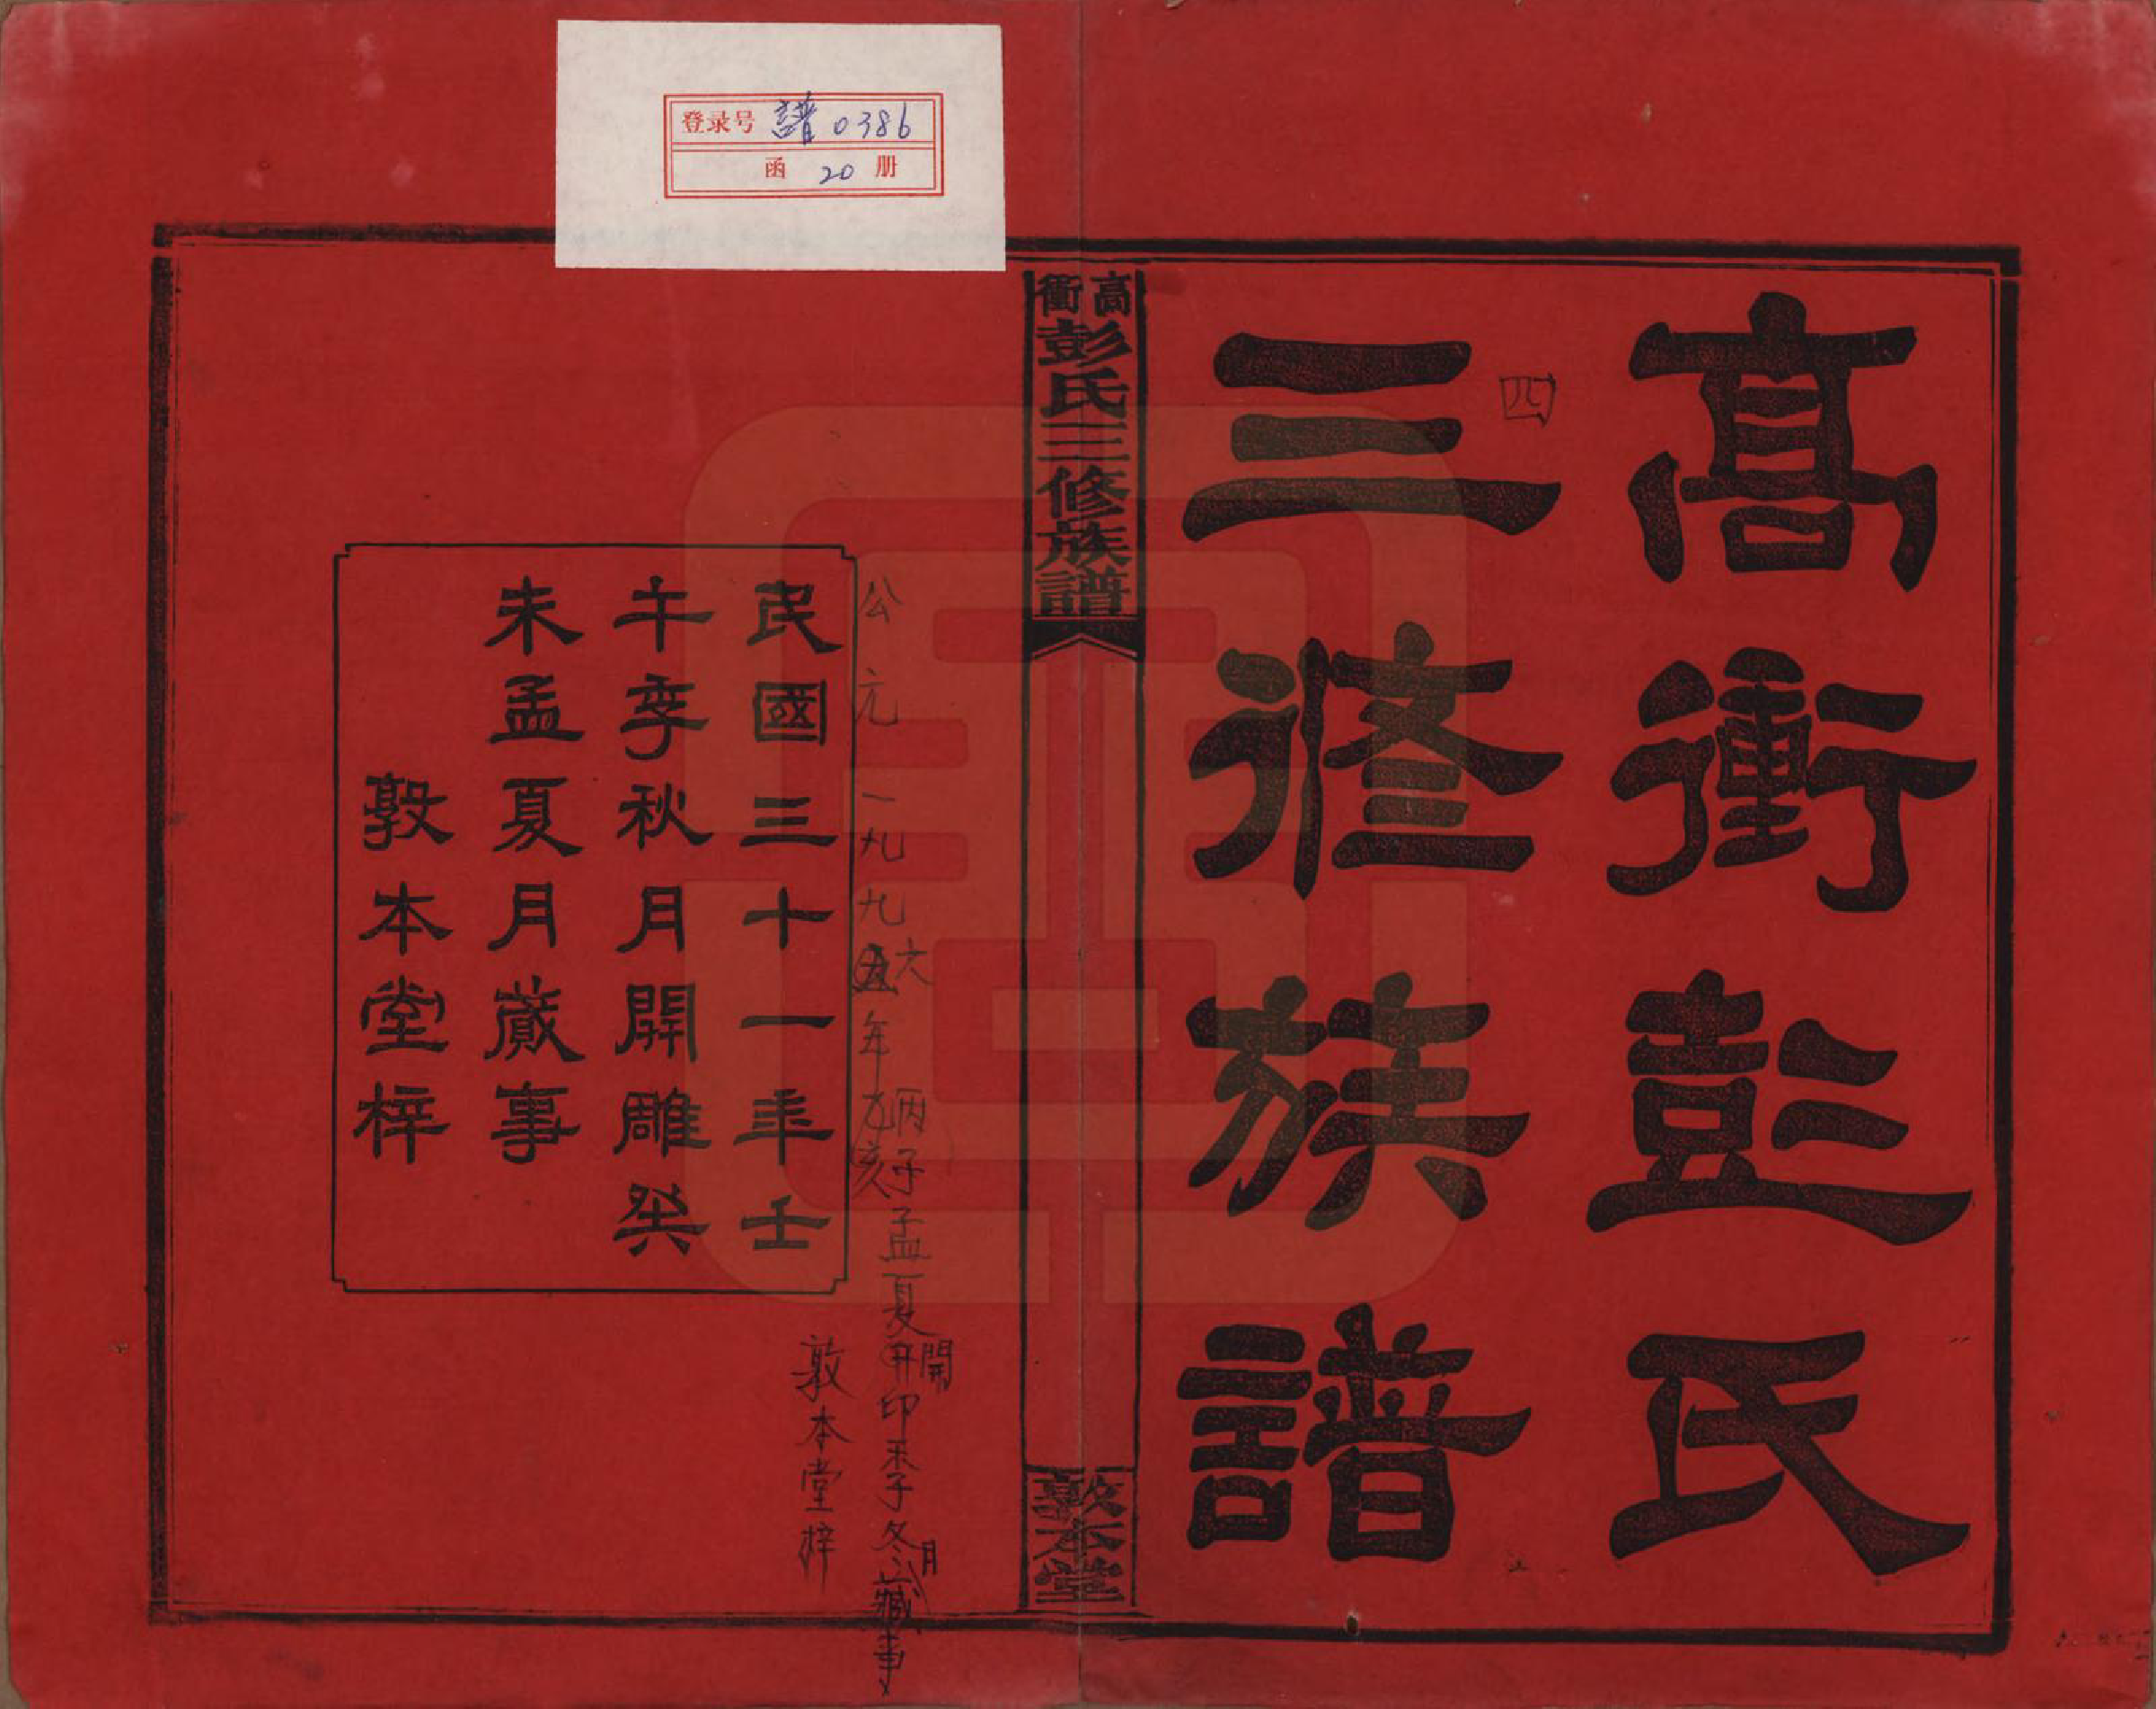 登录号 譜0386
函 20 册
高衝彭氏
三修族譜
四
高衝彭氏三修族譜
敦本堂
公元一九九五六年乙亥丙子孟夏开開印季冬月蕆事
敦本堂梓
民國三十一年壬
午季秋月開雕癸
未孟夏月蕆事
敦本堂梓